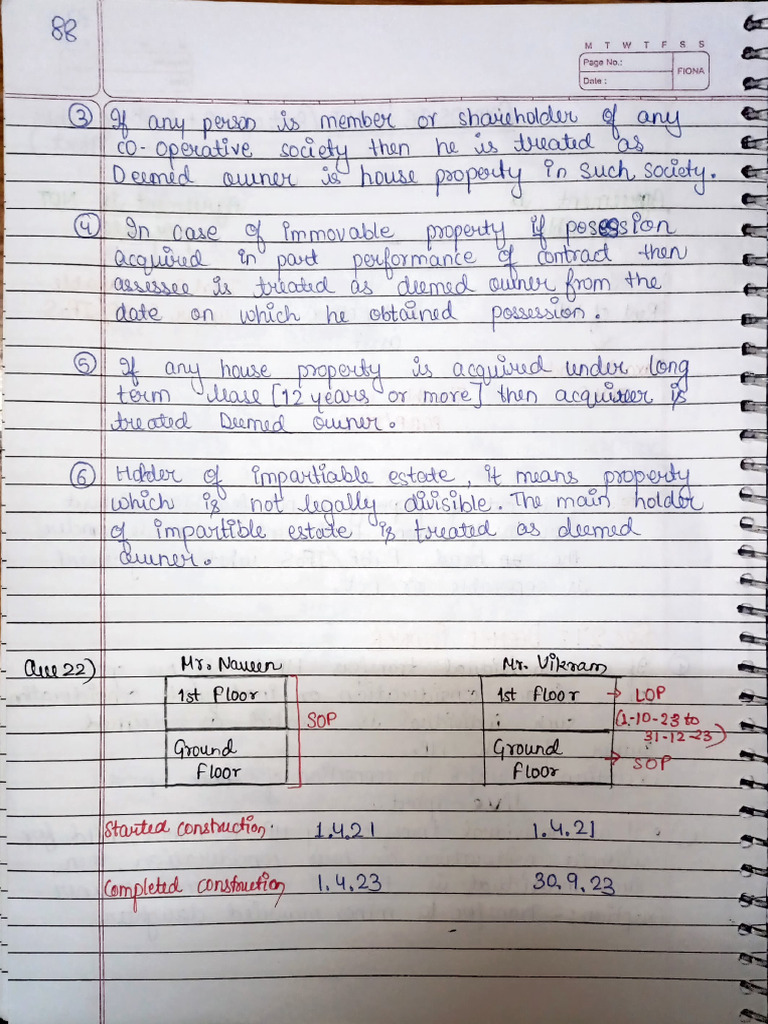 88
M T W T F S S
Page No.:
Date :
FIONA
③ If any person is member or shareholder of any
co-operative society then he is treated as
Deemed owner is house property in such society.
④ In case of immovable property if possession
acquired in part performance of contract then
assessee is treated as deemed owner from the
date on which he obtained possession.
⑤ If any house property is acquired under long
term lease [12 years or more] then acquirer is
treated Deemed owner.
⑥ Holder of impartiable estate, it means property
which is not legally divisible. The main holder
of impartible estate is treated as deemed
owner.
Que 22) Mr. Naveen Mr. Vikram
1st Floor SOP 1st Floor → LOP
(1-10-23 to
31-12-23)
Ground Ground → SOP
Floor Floor
Started construction: 1.4.21 1.4.21
Completed construction 1.4.23 30.9.23